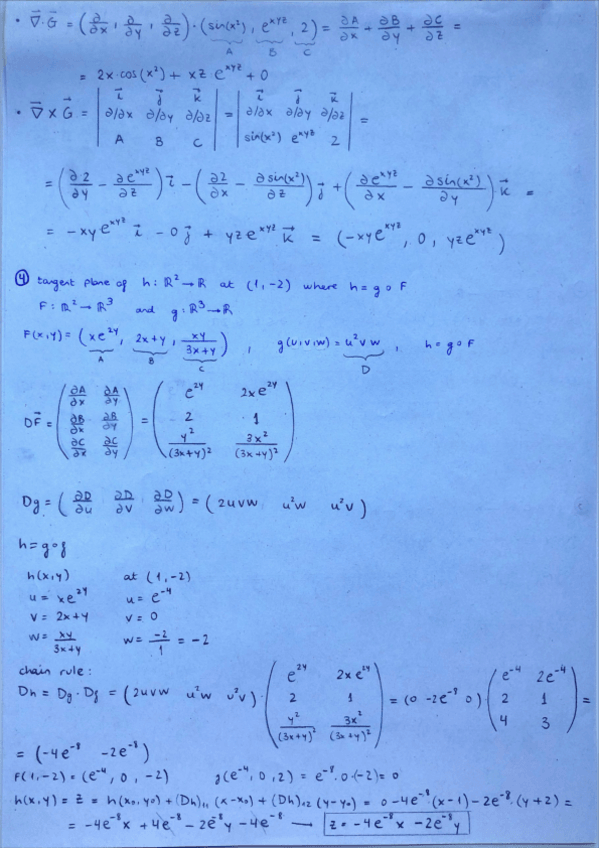 • ∇⃗·G⃗ = (∂/∂x, ∂/∂y, ∂/∂z)·(sin(x²), e^xyz, 2) = ∂A/∂x + ∂B/∂y + ∂C/∂z =
A B C
= 2x·cos(x²) + xz e^xyz + 0
• ∇⃗×G⃗ = | i⃗ j⃗ k⃗ | = | i⃗ j⃗ k⃗ | =
| ∂/∂x ∂/∂y ∂/∂z | | ∂/∂x ∂/∂y ∂/∂z |
| A B C | | sin(x²) e^xyz 2 |
= (∂2/∂y - ∂e^xyz/∂z) i⃗ - (∂2/∂x - ∂sin(x²)/∂z) j⃗ + (∂e^xyz/∂x - ∂sin(x²)/∂y) k⃗ =
= -xye^xyz i⃗ - 0 j⃗ + yze^xyz k⃗ = (-xye^xyz, 0, yze^xyz)
④ tangent plane of h: ℝ² → ℝ at (1,-2) where h = g∘F
F: ℝ² → ℝ³ and g: ℝ³ → ℝ
F(x,y) = (xe^2y, 2x+y, xy/(3x+y)), g(u,v,w) = u²vw, h = g∘F
A B C D
DF⃗ = (∂A/∂x ∂A/∂y) = (e^2y 2xe^2y)
(∂B/∂x ∂B/∂y) (2 1)
(∂C/∂z ∂C/∂y) (y²/(3x+y)² 3x²/(3x+y)²)
Dg = (∂D/∂u ∂D/∂v ∂D/∂w) = (2uvw u²w u²v)
h = g∘f
h(x,y) at (1,-2)
u = xe^2y u = e^-4
v = 2x+y v = 0
w = xy/(3x+y) w = -2/1 = -2
chain rule:
Dh = Dg·Df = (2uvw u²w u²v)·(e^2y 2xe^2y) = (0 -2e^-8 0)·(e^-4 2e^-4) =
(2 1) (2 1)
(y²/(3x+y)² 3x²/(3x+y)²) (4 3)
= (-4e^-8 -2e^-8)
F(1,-2) = (e^-4, 0, -2) g(e^-4, 0, 2) = e^-8·0·(-2) = 0
h(x,y) = z = h(x₀,y₀) + (Dh)₁₁ (x-x₀) + (Dh)₁₂ (y-y₀) = 0 - 4e^-8·(x-1) - 2e^-8·(y+2) =
= -4e^-8x + 4e^-8 - 2e^-8y - 4e^-8 → z = -4e^-8x - 2e^-8y